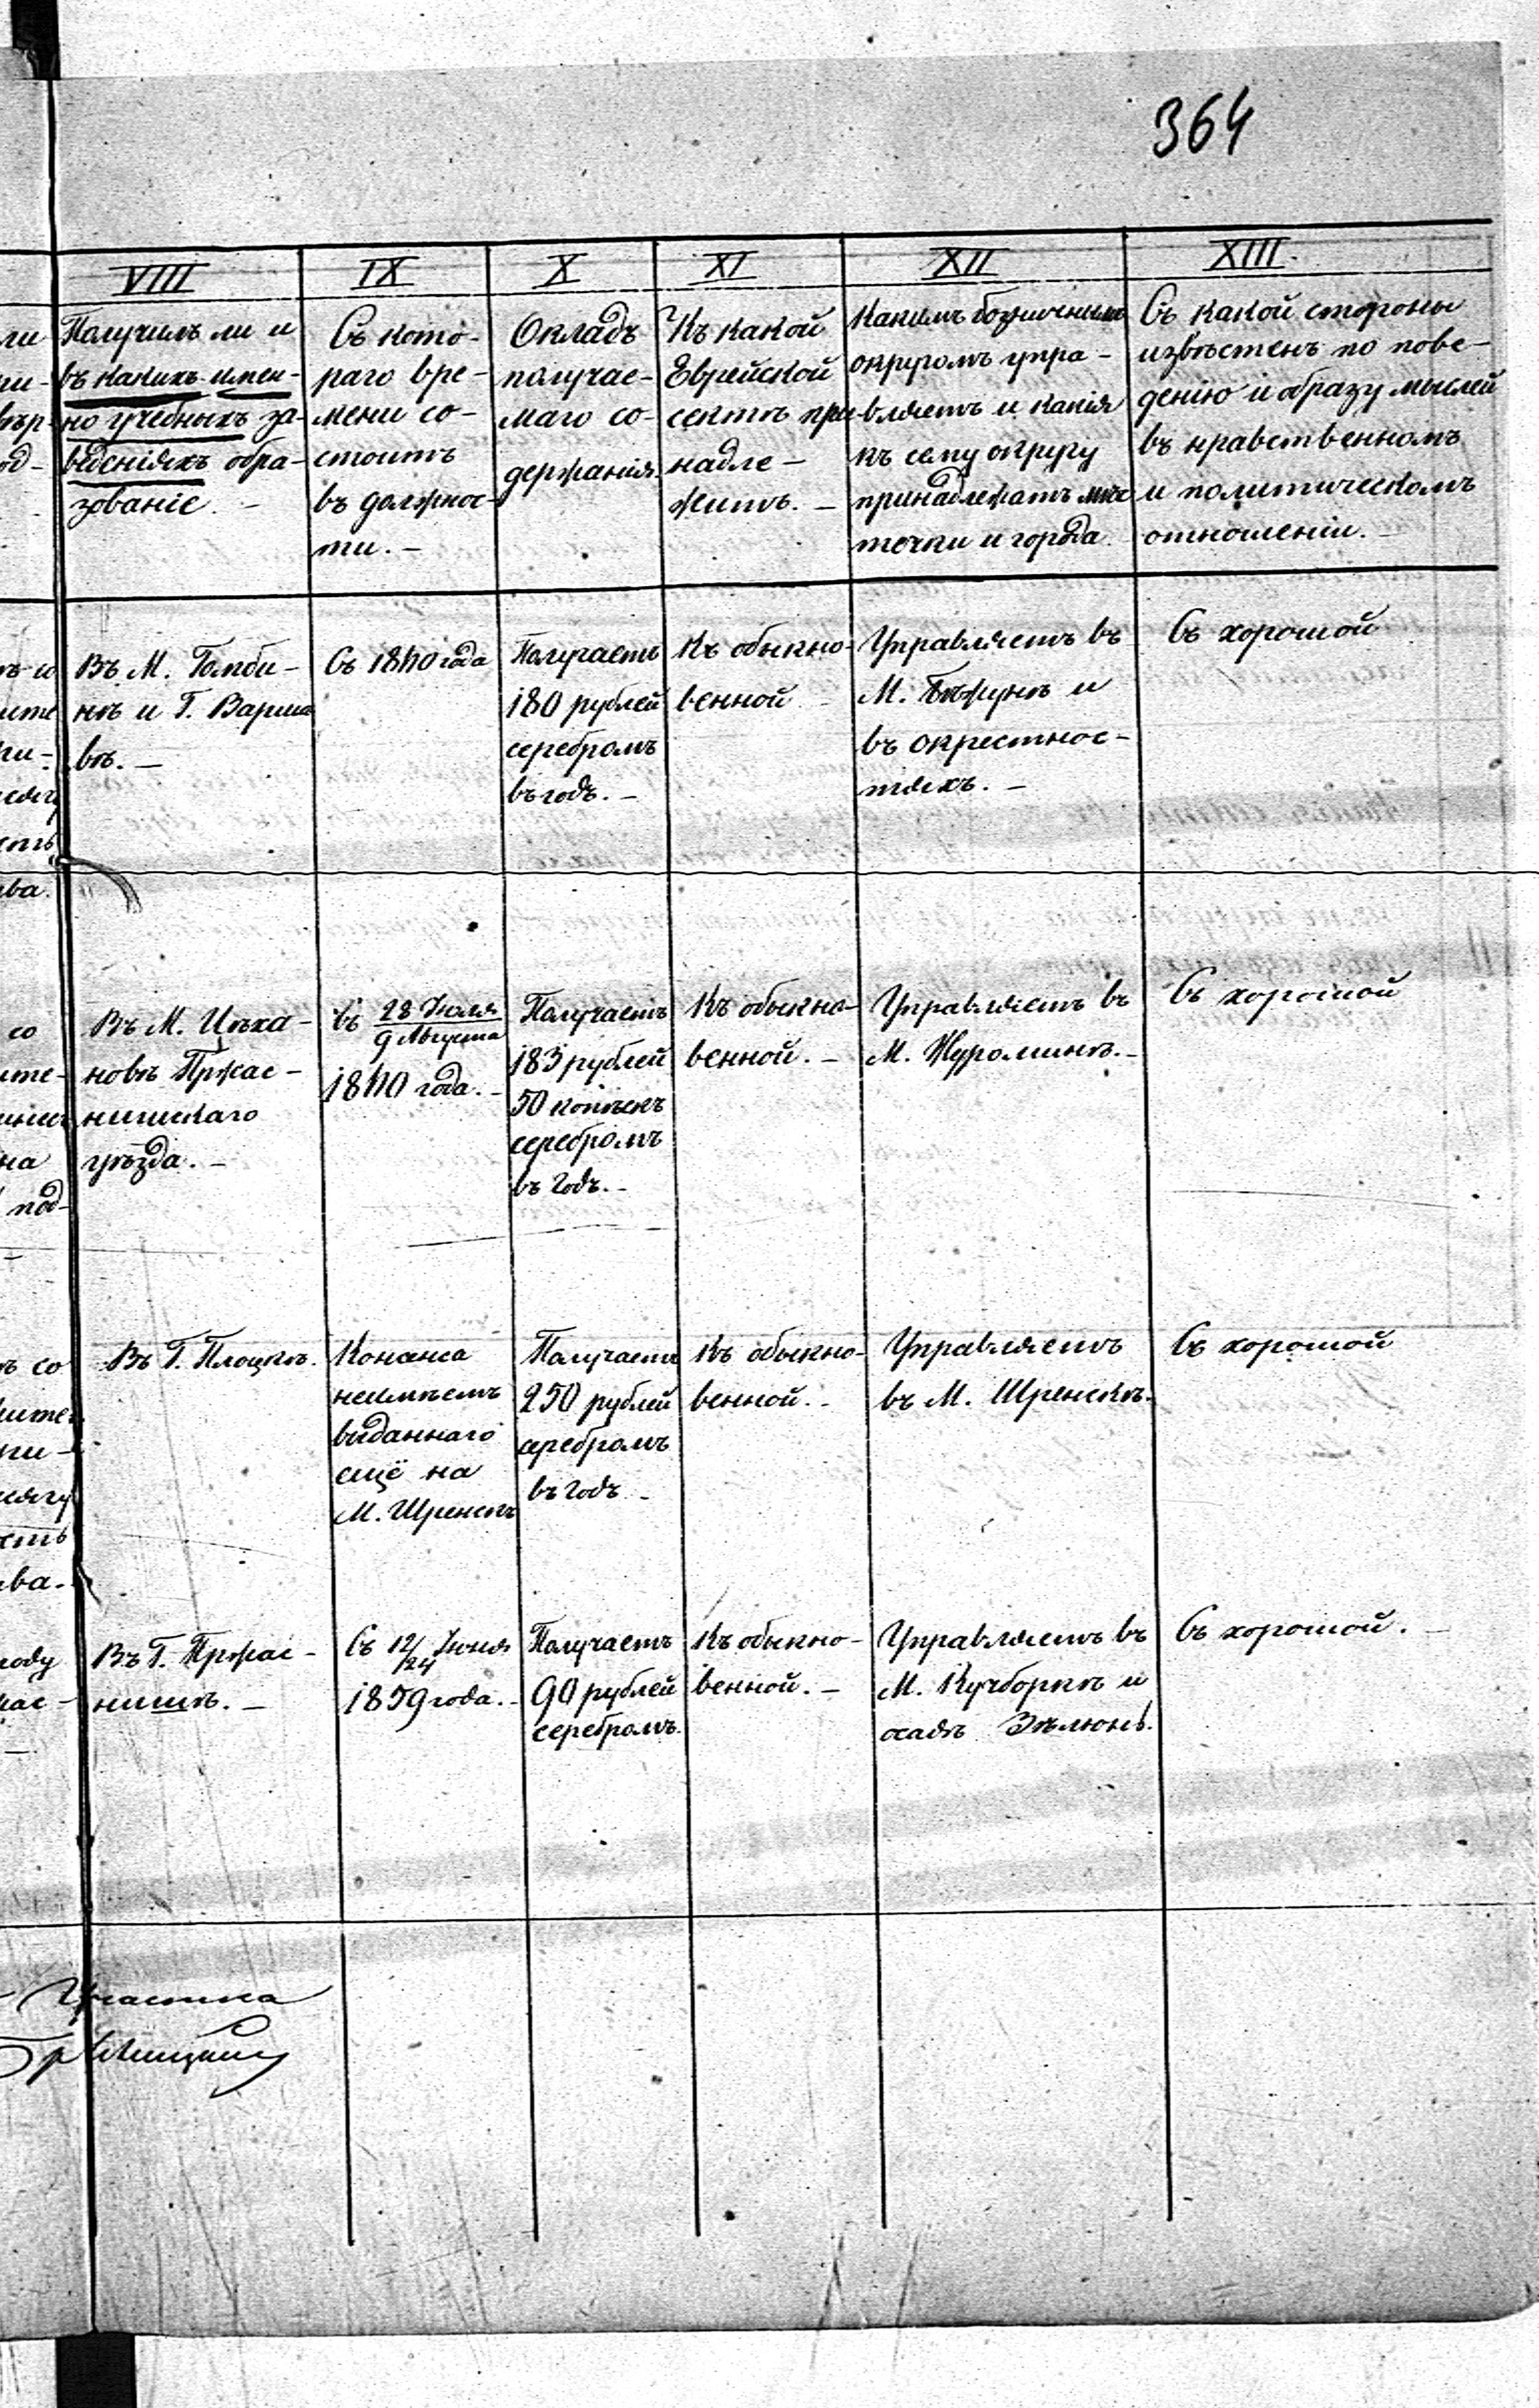 364
VIII
IX
X
XI
XII
XIII.
Получилъ ли и
въ какихъ имен-
но учебныхъ за-
веденіяхъ обра-
зованіе. -
Съ кото-
раго вре-
мени со-
стоитъ
въ должнос-
ти. -
Окладъ
получае-
маго со-
держанія.
Къ какой
Еврейской
сектѣ при
надле-
житъ. -
Какимъ божничнымъ
округомъ упра-
вляетъ и какія
къ сему округу
принадлежатъ мѣс
точки и города.
Съ какой стороны
извѣстенъ по пове-
денію и образу мыслей
въ нравственномъ
и политическомъ
отношеніи. -
Въ М. Гомби-
нѣ и Г. Варша
вѣ. -
Съ 1840 года
Получаетъ
180 рублей
серебромъ
въ годъ. -
Къ обыкно-
венной -
Управляетъ въ
М. Бѣжунѣ и
въ окрестнос-
тяхъ. -
Съ хорошой
Въ М. Цѣха-
новѣ Пржас-
нишскаго
уѣзда. -
Съ 28 Іюля
9 Августа
1840 года. -
Получаетъ
183 рублей
50 копѣекъ
серебромъ
въ годъ. -
Къ обыкно-
венной. -
Управляетъ въ
М. Журоминѣ. -
Съ хорошой
Въ Г. Плоцкѣ.
Конанса
неимѣетъ
выданнаго
ещё на
М. Щренскъ
Получаетъ
250 рублей
серебромъ
въ годъ -
Къ обыкно-
венной. -
Управляетъ
въ М. Щренскѣ.
Съ хорошой
Въ Г. Пржас-
нишѣ. -
Съ 12/24 Іюня
1859 года. -
Получаетъ
90 рублей
серебромъ.
Къ обыкно-
венной. -
Управляетъ въ
М. Кучборкѣ и
осадѣ Зѣлюнь.
Съ хорошой. -
Участка